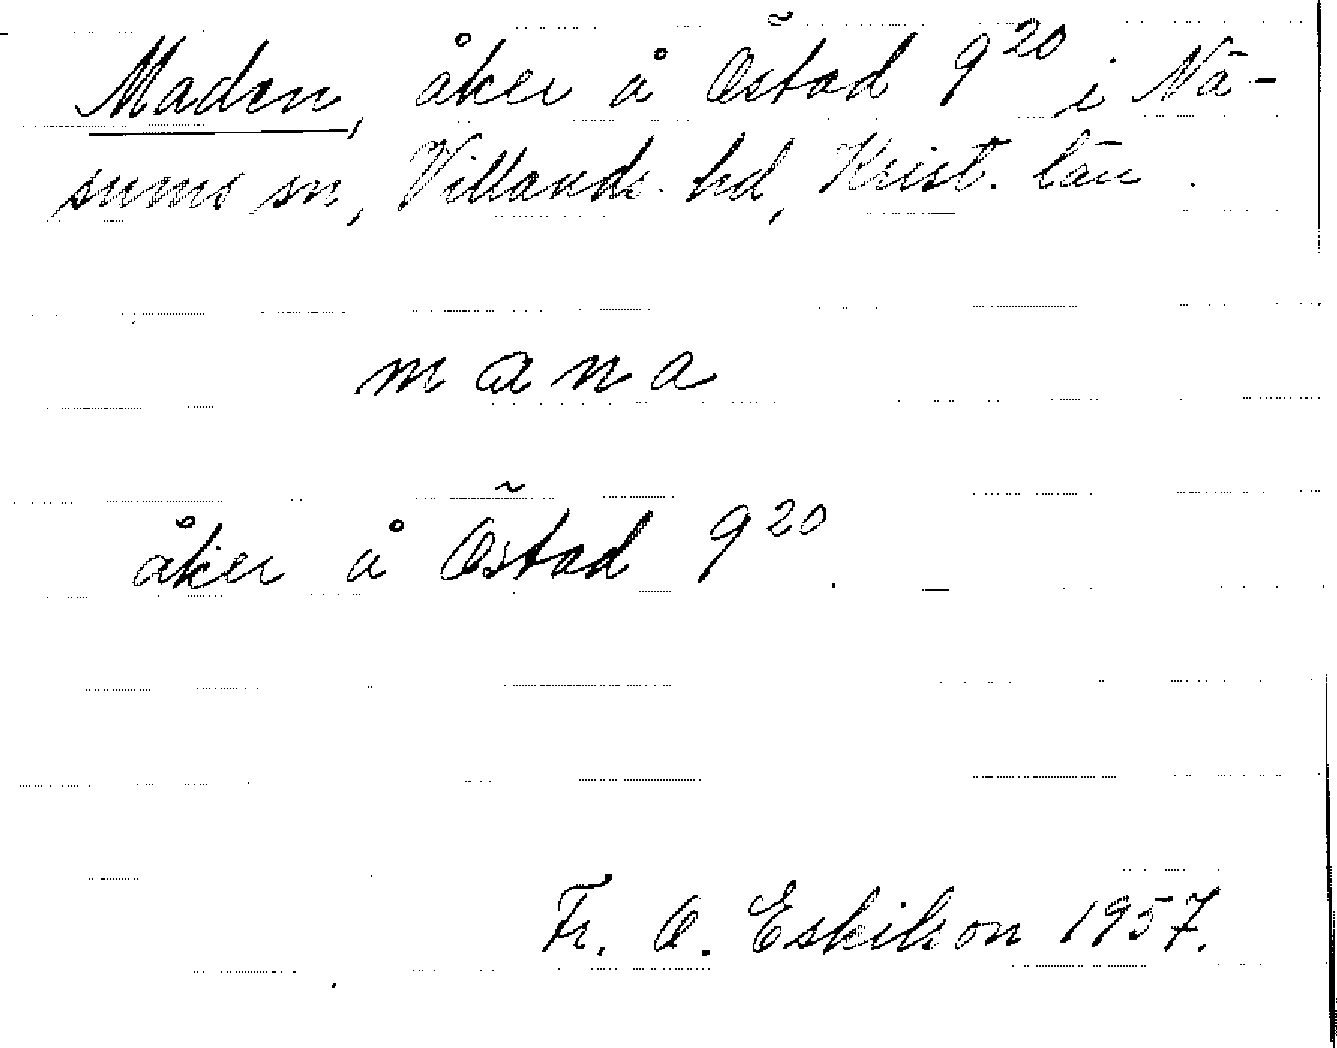 Maden, åker å Östad 9²⁰ i Nä-
sums sn, Villands hd, Krist. län.
mana
åker å Östad 9²⁰.
Fr. O. Eskilson 1957.